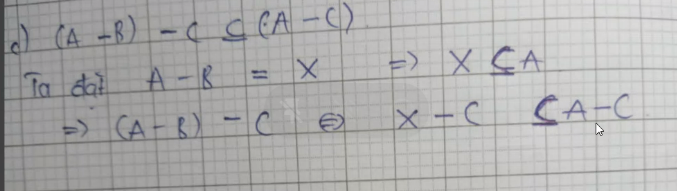 c) (A - B) - C ⊆ (A - C)
Ta đặt A - B = X => X ⊆ A
=> (A - B) - C ⇔ X - C ⊆ A - C